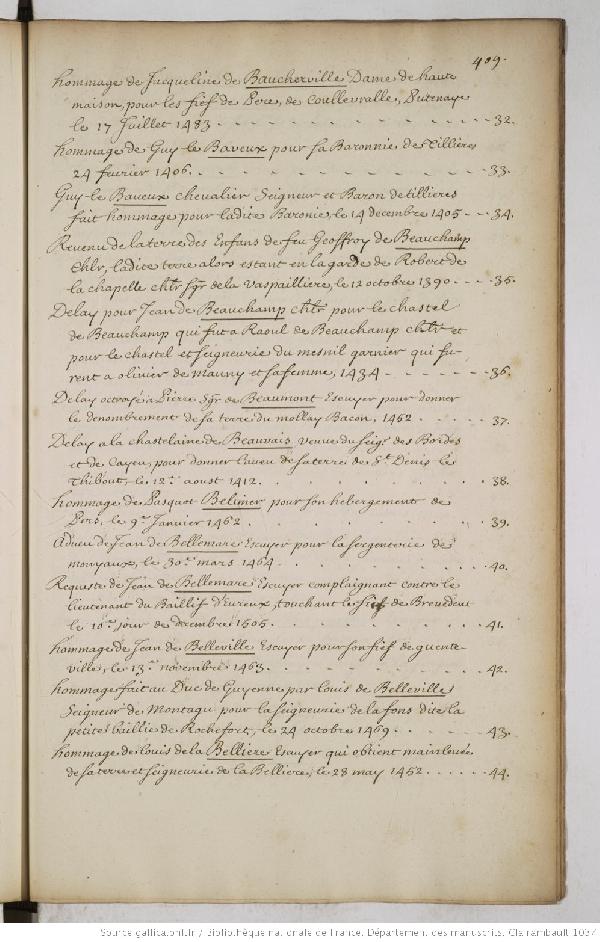 409.
hommage de Jacqueline de Baucherville Dame de haute
maison, pour les fief de Pere, de Coullevralle, Putenaye
le 17 Juillet 1483 - - - - - - - - - - 32.
hommage de Guy le Baveux pour sa Baronnie de Tillieres
24 fevrier 1406. . . . . . . . . . . . 33.
Guy le Baveux chevalier Seigneur et Baron de tillieres
fait hommage pour ladite Baronie, le 14 decembre 1405 - - - 34.
Revenu de la terre des Enfans de feu Geoffroy de Beauchamp
Chlr, ladite terre alors estant en la garde de Robert de
la chapelle chlr sgr de la vaspailliere, le 12 octobre 1390 - - - - 35.
Delay pour Jean de Beauchamp chlr pour le chastel
de Beauchamp qui fut a Raoul de Beauchamp chlr et
pour le chastel et seigneurie du mesnil garnier qui fu-
rent a olivier de Mauny et sa femme, 1434 - - - - - - - - 36.
Delay octroyé a Pierre Sgr de Beaumont Escuyer pour donner
le denombrement de sa terre du mollay Bacon, 1452 . . . . . 37.
Delay a la chastelaine de Beauvais veuve du seigr des Bordes
et de Cayeu, pour donner l'aveu de sa terre de St. Denis le
Thibout, le 12e aoust 1412 . . . . . . . . 38.
hommage de Pasquet Belimer pour son hebergement de
Pers, le 9e Janvier 1462 . . . . . . . . 39.
adveu de Jean de Bellemare Escuyer pour la sergenterie de
noiyaux, le 30e mars 1464 . . . . . . . . 40.
Requeste de Jean de Bellemare Escuyer complaignant contre le
lieutenant du Baillif d'Evreux, touchant le fief de Brevedent
le 10e jour de decembre 1505 . . . . . . . . 41.
hommage de Jean de Belleville Escuyer pour son fief de guente-
ville, le 13e novembre 1463 . . . . . . . . 42.
hommage fait au Duc de Guyenne par louis de Belleville
Seigneur de Montagu pour la seigneurie de la fons dite la
petite baillie de Rochefort, le 24 octobre 1469 . . . . . . 43.
hommage de louis de la Belliere Escuyer qui obtient mainlevée
de sa terre et seigneurie de la Belliere, le 28 may 1452 . . . . . . 44.
Source gallica.bnf.fr / Bibliothèque nationale de France. Département des manuscrits. Clairambault 1034